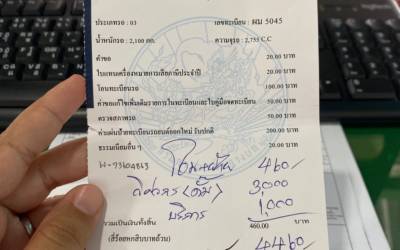 ประเภทรถ : 03 เลขทะเบียน : ผม 5045
น้ำหนักรถ : 2,100 กก. ความจุรถ : 2,755 C.C
คำขอ 20.00 บาท
ใบแทนเครื่องหมายการเสียภาษีประจำปี 20.00 บาท
โอนทะเบียนรถ 100.00 บาท
ค่าขอแก้ไขเพิ่มเติมรายการในทะเบียนและใบคู่มือจดทะเบียน 50.00 บาท
ตรวจสภาพรถ 50.00 บาท
ค่าแผ่นป้ายทะเบียนรถยนต์ออกใหม่ รับปกติ 200.00 บาท
ธรรมเนียมอื่น ๆ 20.00 บาท
460
3,000
บริการ 1,000
รวมเป็นเงินทั้งสิ้น 460.00 บาท
(สี่ร้อยหกสิบบาทถ้วน) 4460